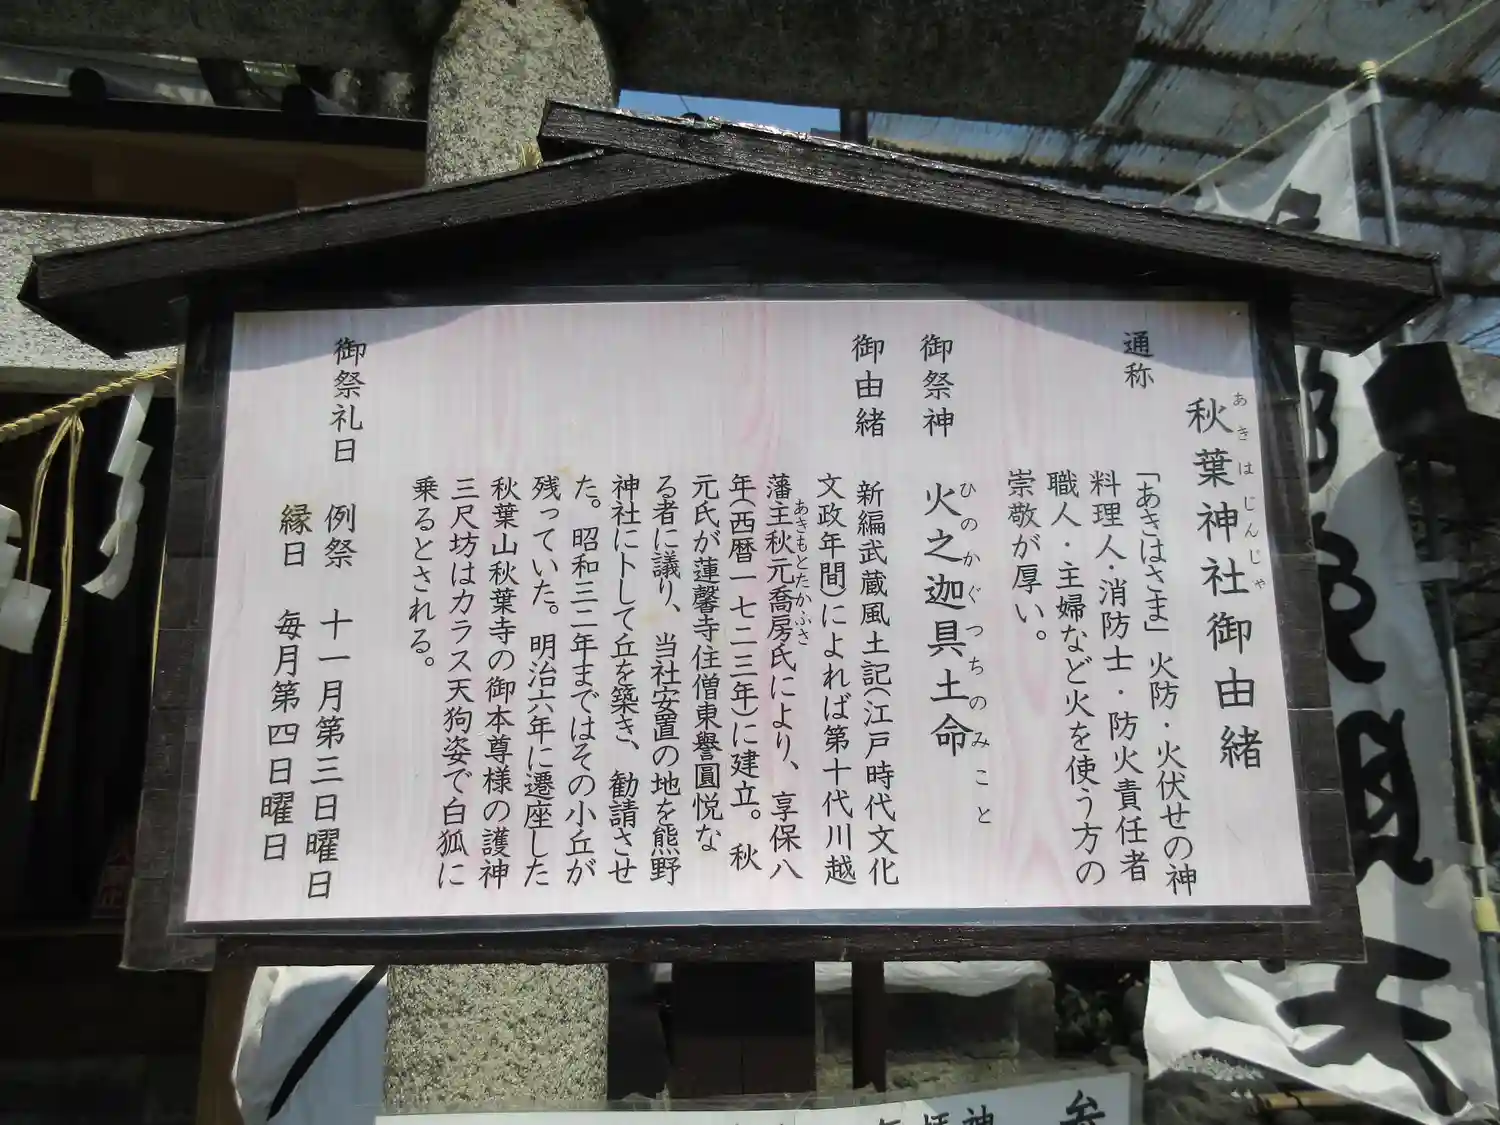 秋葉神社御由緒
あきはじんじゃ
通称
「あきはさま」火防・火伏せの神
料理人・消防士・防火責任者
職人・主婦など火を使う方の
崇敬が厚い。
御祭神
火之迦具土命
ひのかぐつちのみこと
御由緒
新編武蔵風土記(江戸時代文化
文政年間)によれば第十代川越
藩主秋元喬房氏により、享保八
あきもとたかふさ
年(西暦一七二三年)に建立。秋
元氏が蓮馨寺住僧東譽圓悦な
る者に議り、当社安置の地を熊野
神社に卜して丘を築き、勧請させ
た。昭和三二年まではその小丘が
残っていた。明治六年に遷座した
秋葉山秋葉寺の御本尊様の護神
三尺坊はカラス天狗姿で白狐に
乗るとされる。
御祭礼日
例祭 十一月第三日曜日
縁日 毎月第四日曜日